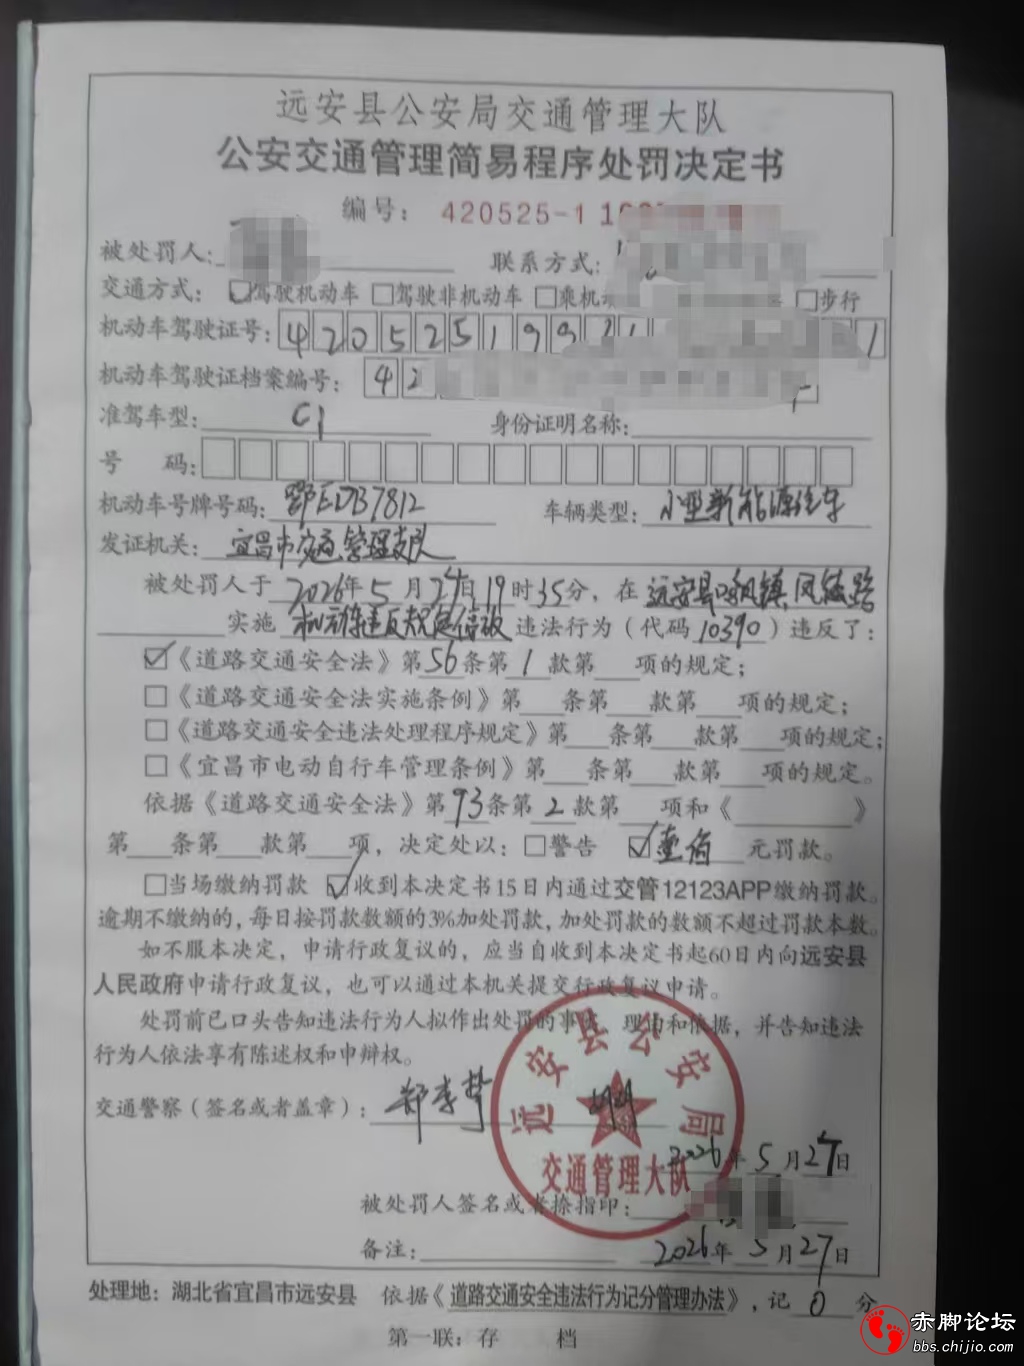 远安县公安局交通管理大队
公安交通管理简易程序处罚决定书
编号: 420525-1
被处罚人: 联系方式:
交通方式: ☑驾驶机动车 □驾驶非机动车 □乘机动 □步行
机动车驾驶证号: 420525199 1
机动车驾驶证档案编号: 42
准驾车型: C1 身份证明名称:
号 码:
机动车号牌号码: 鄂EDB7812 车辆类型: 小型新能源汽车
发证机关: 宜昌市交通管理支队
被处罚人于 2026年5月24日19时35分, 在 远安县鸣凤镇凤 路
实施 机动车违反规定停放 违法行为(代码 10390)违反了:
☑《道路交通安全法》第56条第1款第 项的规定;
□《道路交通安全法实施条例》第 条第 款第 项的规定;
□《道路交通安全违法处理程序规定》第 条第 款第 项的规定;
□《宜昌市电动自行车管理条例》第 条第 款第 项的规定。
依据《道路交通安全法》第93条第2款第 项和《 》
第 条第 款第 项, 决定处以: □警告 ☑壹佰 元罚款。
□当场缴纳罚款 ☑收到本决定书15日内通过交管12123APP缴纳罚款。
逾期不缴纳的, 每日按罚款数额的3%加处罚款, 加处罚款的数额不超过罚款本数。
如不服本决定, 申请行政复议的, 应当自收到本决定书起60日内向远安县
人民政府申请行政复议, 也可以通过本机关提交行政复议申请。
处罚前已口头告知违法行为人拟作出处罚的事实、理由和依据, 并告知违法
行为人依法享有陈述权和申辩权。
交通警察(签名或者盖章):
远安县公安局
交通管理大队
2026年5月27日
被处罚人签名或者捺指印:
备注: 2026年5月27日
处理地: 湖北省宜昌市远安县 依据《道路交通安全违法行为记分管理办法》, 记 0 分
第一联: 存 档
赤脚论坛
bbs.chijio.com